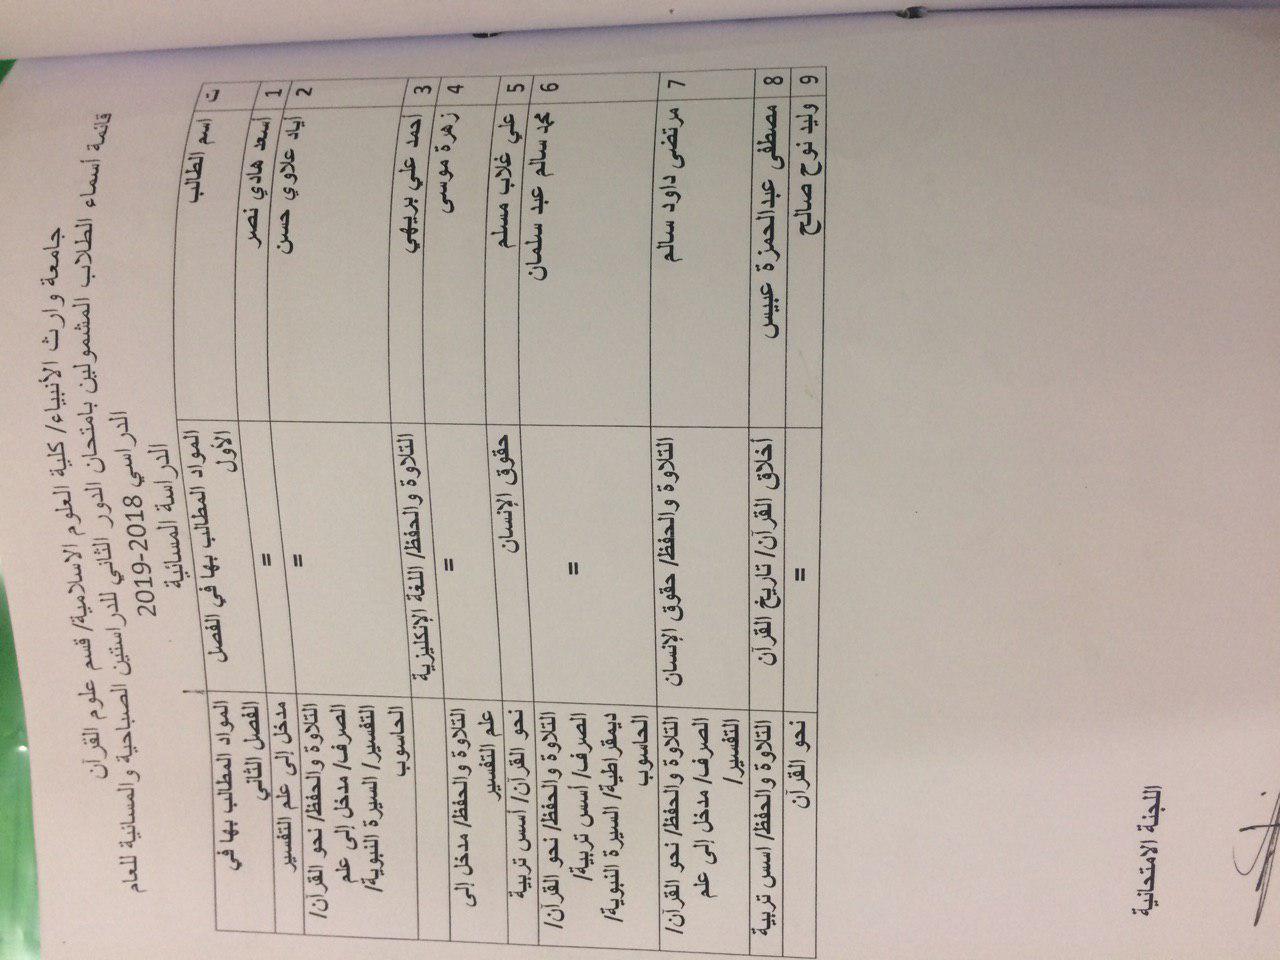 جامعة وارث الأنبياء/ كلية العلوم الاسلامية/ قسم علوم القرآن
قائمة أسماء الطلاب المشمولين بامتحان الدور الثاني للدراستين الصباحية والمسائية للعام
الدراسي 2018-2019
الدراسة المسائية
ت اسم الطالب المواد المطالب بها في الفصل المواد المطالب بها في
الأول الفصل الثاني
1 أسعد هادي نصر = مدخل إلى علم التفسير
2 أياد علاوي حسن = التلاوة والحفظ/ نحو القرآن/
الصرف/ مدخل إلى علم
التفسير/ السيرة النبوية/
الحاسوب
3 احمد علي بريهي التلاوة والحفظ/ اللغة الإنكليزية
4 زهرة موسى = التلاوة والحفظ/ مدخل إلى
علم التفسير
5 علي غلاب مسلم حقوق الإنسان نحو القرآن/ أسس تربية
6 محمد سالم عبد سلمان = التلاوة والحفظ/ نحو القرآن/
الصرف/ أسس تربية/
ديمقراطية/ السيرة النبوية/
الحاسوب
7 مرتضى داود سالم التلاوة والحفظ/ حقوق الإنسان التلاوة والحفظ/ نحو القرآن/
الصرف/ مدخل إلى علم
التفسير/
8 مصطفى عبدالحمزة عبيس أخلاق القرآن/ تاريخ القرآن التلاوة والحفظ/ اسس تربية
9 وليد نوح صالح = نحو القرآن
اللجنة الامتحانية